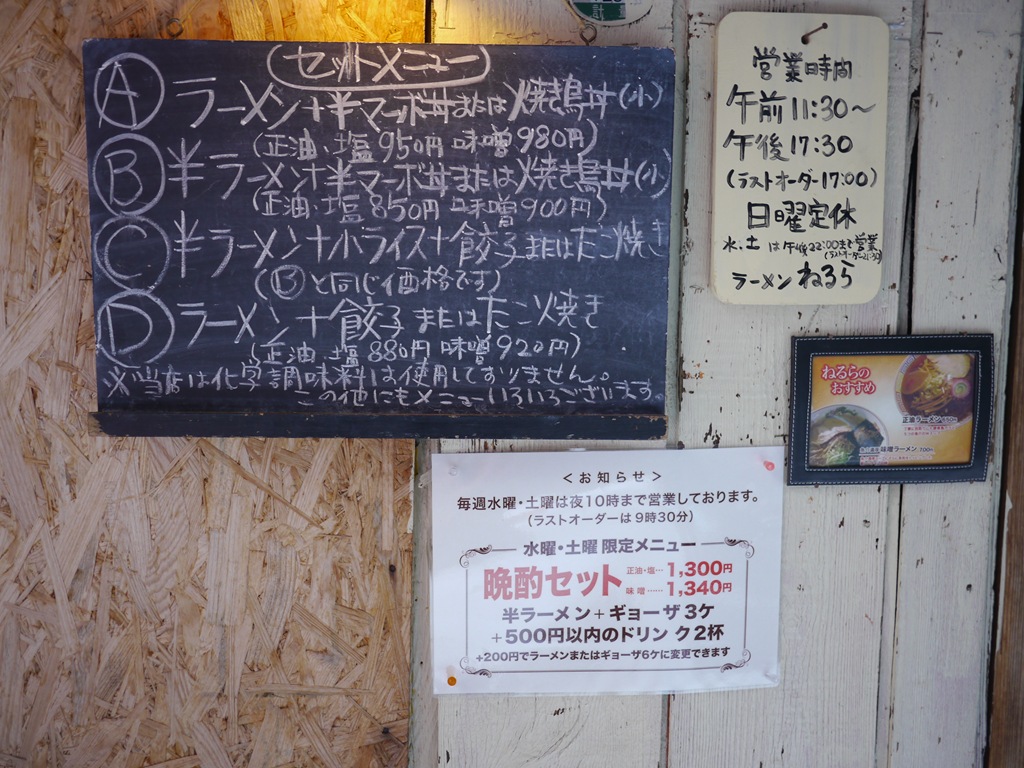 セットメニュー
Ⓐ ラーメン+半マーボ丼または焼き鳥丼(小)
(正油、塩 950円 味噌 980円)
Ⓑ 半ラーメン+半マーボ丼または焼き鳥丼(小)
(正油、塩 850円 味噌 900円)
Ⓒ 半ラーメン+小ライス+餃子またはたこ焼き
(Ⓑと同じ価格です)
Ⓓ ラーメン+餃子またはたこ焼き
(正油、塩 880円 味噌 920円)
※当店は化学調味料は使用しておりません。
この他にもメニューいろいろございます。
営業時間
午前11:30〜
午後17:30
(ラストオーダー17:00)
日曜定休
水、土は午後22:00まで営業
(ラストオーダー21:30)
ラーメン ねるら
ねるらの
おすすめ
正油ラーメン
味噌ラーメン 700円
<お知らせ>
毎週水曜・土曜は夜10時まで営業しております。
(ラストオーダーは9時30分)
水曜・土曜 限定メニュー
晩酌セット 正油・塩… 1,300円
味噌…… 1,340円
半ラーメン+ギョーザ3ケ
+500円以内のドリンク2杯
+200円でラーメンまたはギョーザ6ケに変更できます